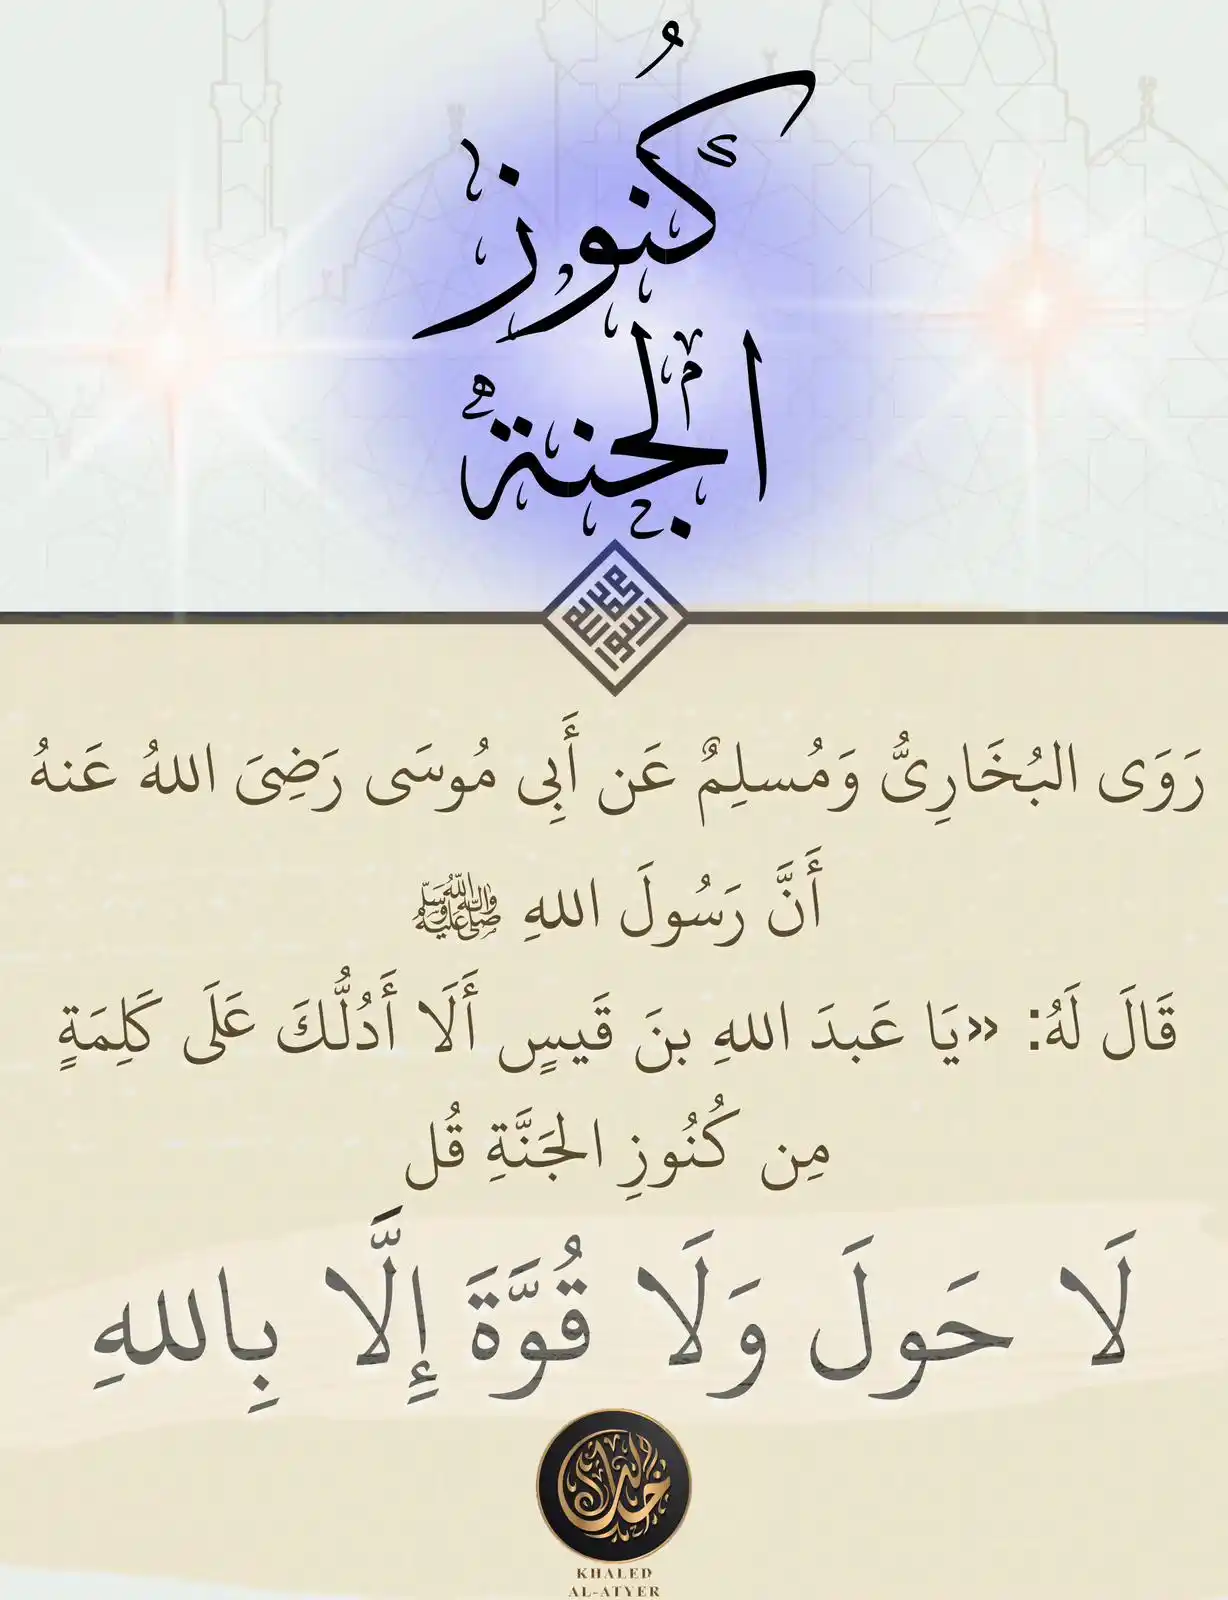 كُنُوز
الجنة
محمد رسول الله
رَوَى البُخَارِىُّ وَمُسلِمٌ عَن أَبِى مُوسَى رَضِىَ اللهُ عَنهُ
أَنَّ رَسُولَ اللهِ ﷺ
قَالَ لَهُ: «يَا عَبدَ اللهِ بنَ قَيسٍ أَلَا أَدُلُّكَ عَلَى كَلِمَةٍ
مِن كُنُوزِ الجَنَّةِ قُل
لَا حَولَ وَلَا قُوَّةَ إِلَّا بِاللهِ
KHALED
AL-ATYER